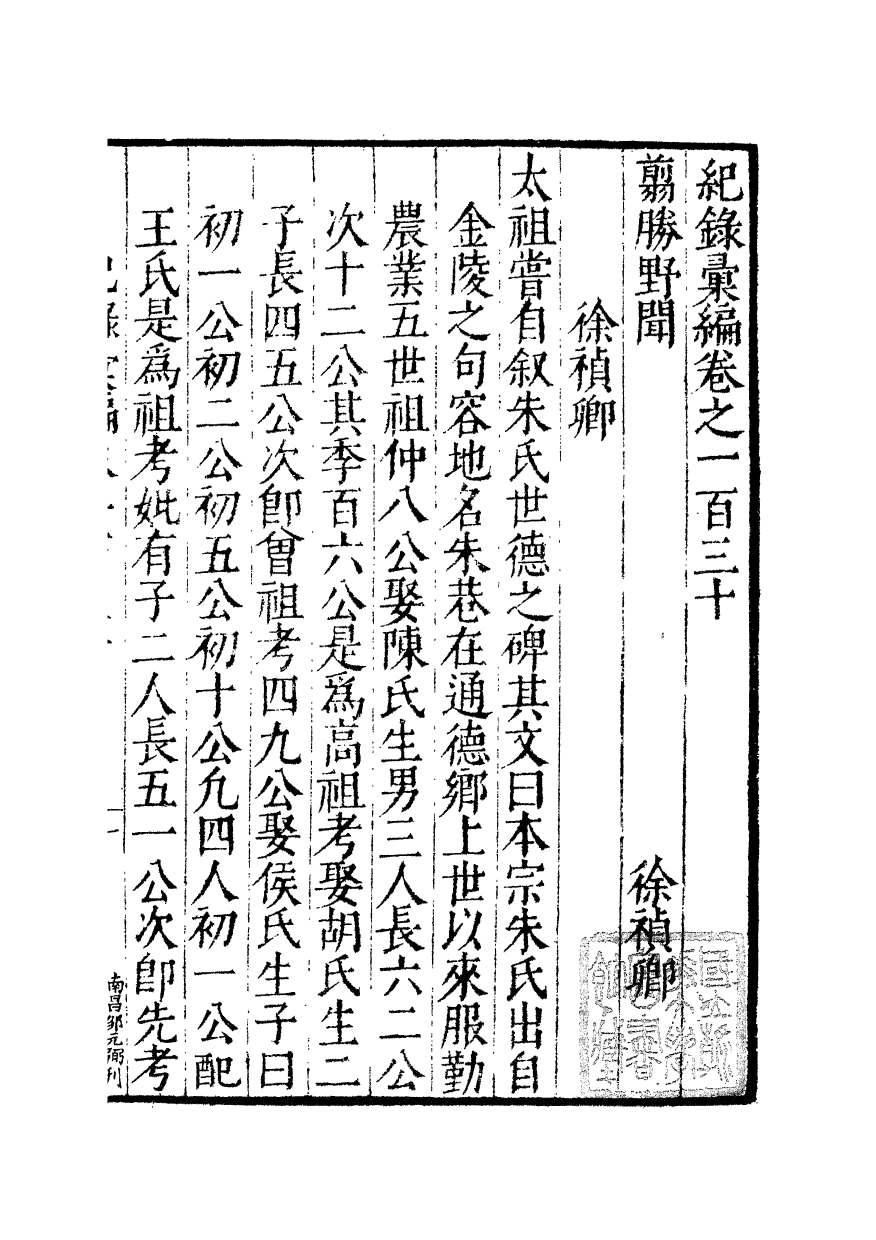 紀錄彙編卷之一百三十
翦勝野聞　徐禎卿
徐禎卿
太祖嘗自叙朱氏世德之碑其文曰本宗朱氏出自
金陵之句容地名朱巷在通德鄉上世以來服勤
農業五世祖仲八公娶陳氏生男三人長六二公
次十二公其季百六公是爲高祖考娶胡氏生二
子長四五公次卽曾祖考四九公娶侯氏生子曰
初一公初二公初五公初十公凢四人初一公配
王氏是爲祖考妣有子二人長五一公次卽先考
南昌鄒元弼刊